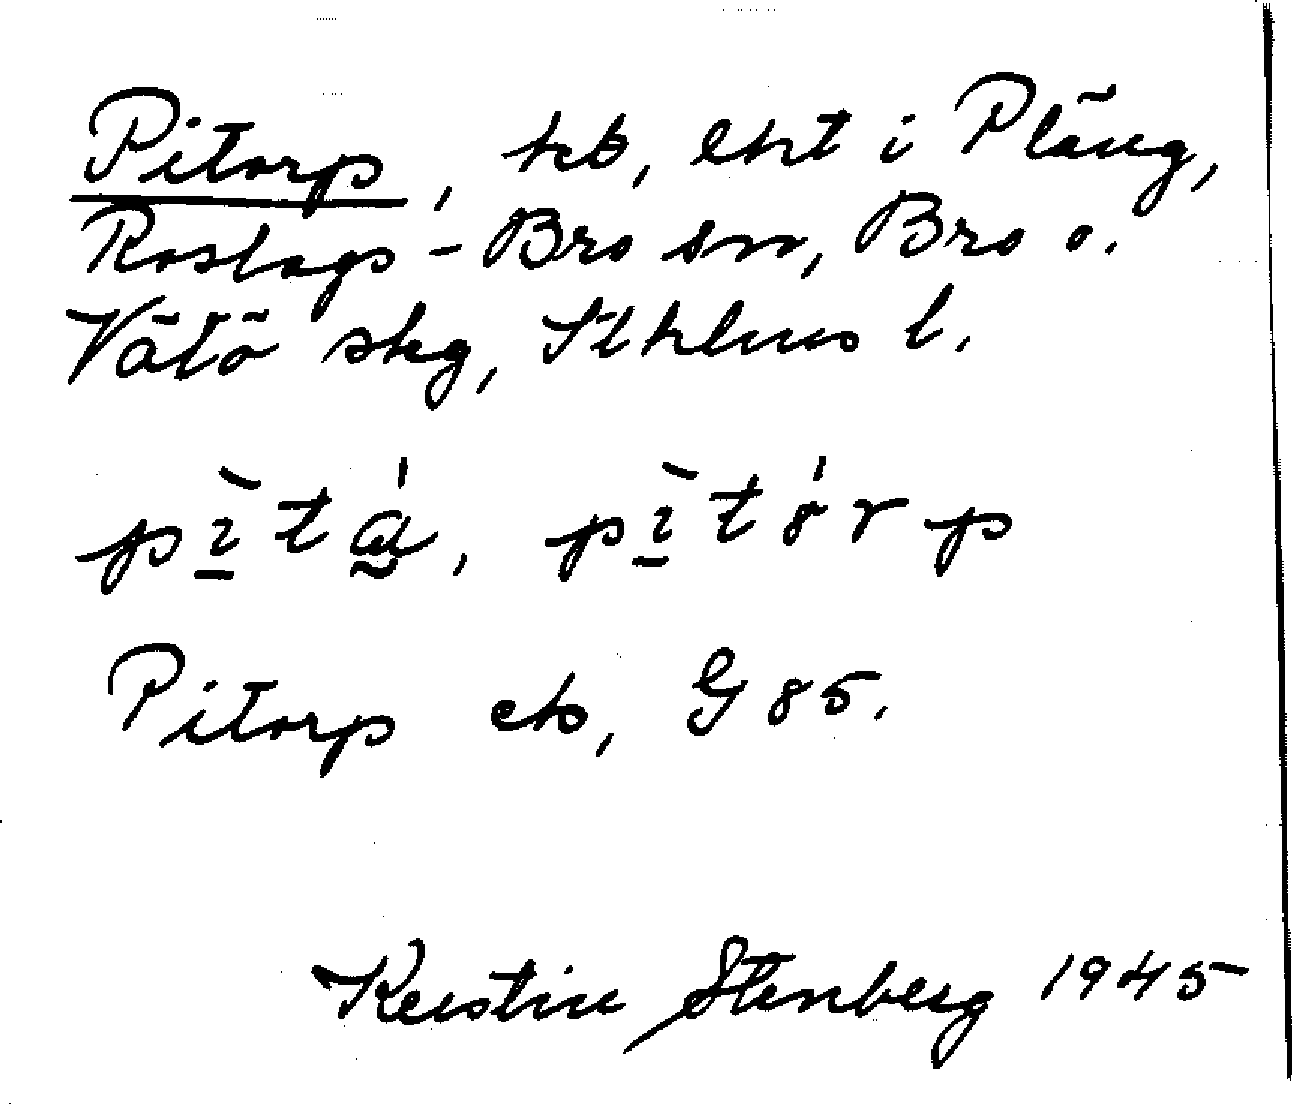 Pitorp, hb, lht i Pläng,
Roslags-Bro sn, Bro o.
Vätö skg, Sthlms l.
pìtá, pìtórp
Pitorp eb, G 85.
Kerstin Stenberg 1945